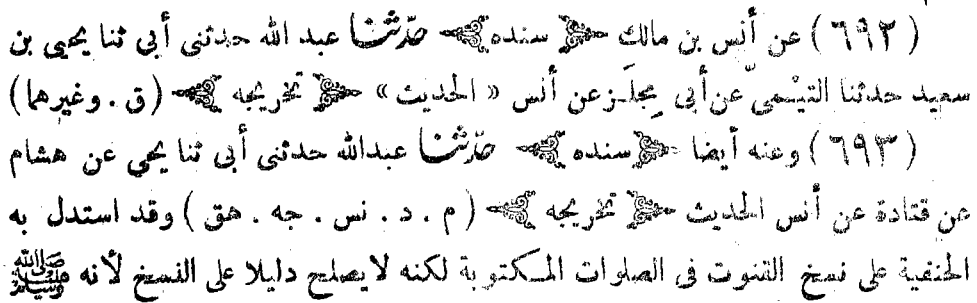 ( ٦٩٢ ) عن أنس بن مالك ﴿ سنده ﴾ حدّثنا عبد الله حدثنى أبى ثنا يحيى بن
سعيد حدثنا التيْمى عن أبى مِجلَـز عن أنس « الحديث » ﴿ تخريجه ﴾ ( ق . وغيرهما )
( ٦٩٣ ) وعنه أيضا ﴿ سنده ﴾ حدّثنا عبدالله حدثنى أبى ثنا يحيى عن هشام
عن قتادة عن أنس الحديث ﴿ تخريجه ﴾ ( م . د . نس . جه . هق ) وقد استدل به
الحنفية على نسخ القنوت فى الصلوات المكتوبة لكنه لايصلح دليلا على النسخ لأنه ﷺ